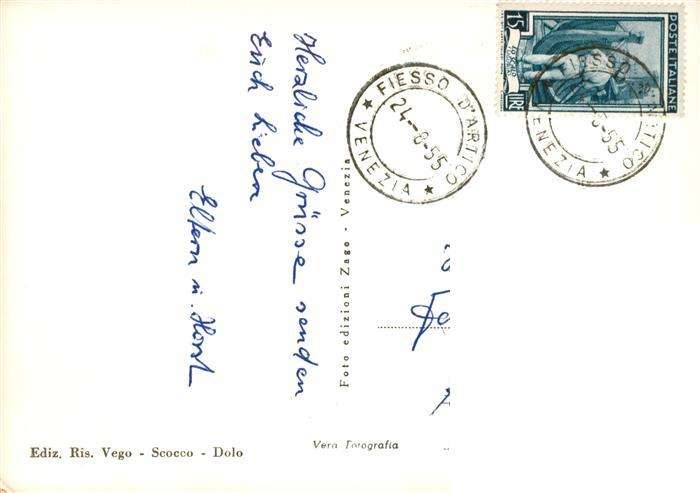 Herzliche Grüsse senden
Euch Lieben
Eltern u. Horst
Foto edizioni Zago - Venezia
Ediz. Ris. Vego - Scocco - Dolo
Vera Fotografia
★ FIESSO D'ARTICO ★ VENEZIA
24-8-55
15 LIRE
POSTE ITALIANE
FIESSO D'ARTICO ★ VENEZIA
-8-55